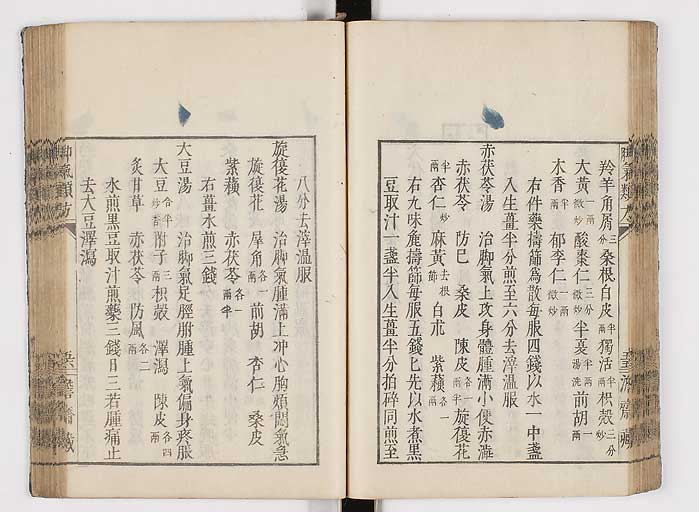 羚羊角屑三分桑根白皮半兩獨活半兩枳殼三分炒
大黃一兩微炒酸棗仁三分微炒半夏半兩湯洗前胡一兩
木香半兩郁李仁一兩微炒
右件藥擣篩爲散每服四錢以水一中盞
入生薑半分煎至六分去滓溫服
赤茯苓湯 治脚氣上攻身體腫滿小便赤澁
赤茯苓 防巳 桑皮 陳皮各一兩半旋復花
半兩杏仁炒麻黃去根節白朮 紫蘓各一兩
右九味麁擣篩每服五錢匕先以水煮黑
豆取汁一盞半入生薑半分拍碎同煎至
八分去滓溫服
旋復花湯 治脚氣腫滿上冲心胸煩悶氣急
旋復花 犀角各一兩前胡 杏仁 桑皮
紫蘓 赤茯苓各一兩半
右薑水煎三錢
大豆湯 治脚氣足脛胕腫上氣偏身疼脹
大豆合半炒香附子三兩枳殼 澤瀉 陳皮各四兩
炙甘草 赤茯苓 防風各二兩
水煎黑豆取汁煎藥三錢日三若腫痛止
去大豆澤瀉